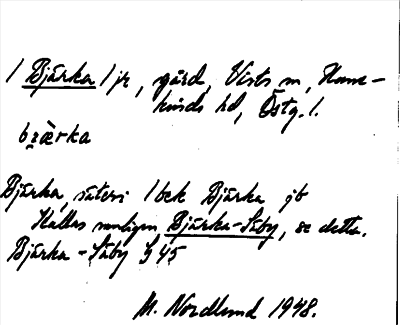 1 Bjärka 1 jr, gård, Vists sn, Hane-
kinds hd, Östg. l.
bjä̀rka
Bjärka, säteri 1 bek Bjärka jb
Kallas vanligen Bjärka-Säby, se detta.
Bjärka-Säby J 45
M. Nordlund 1948.